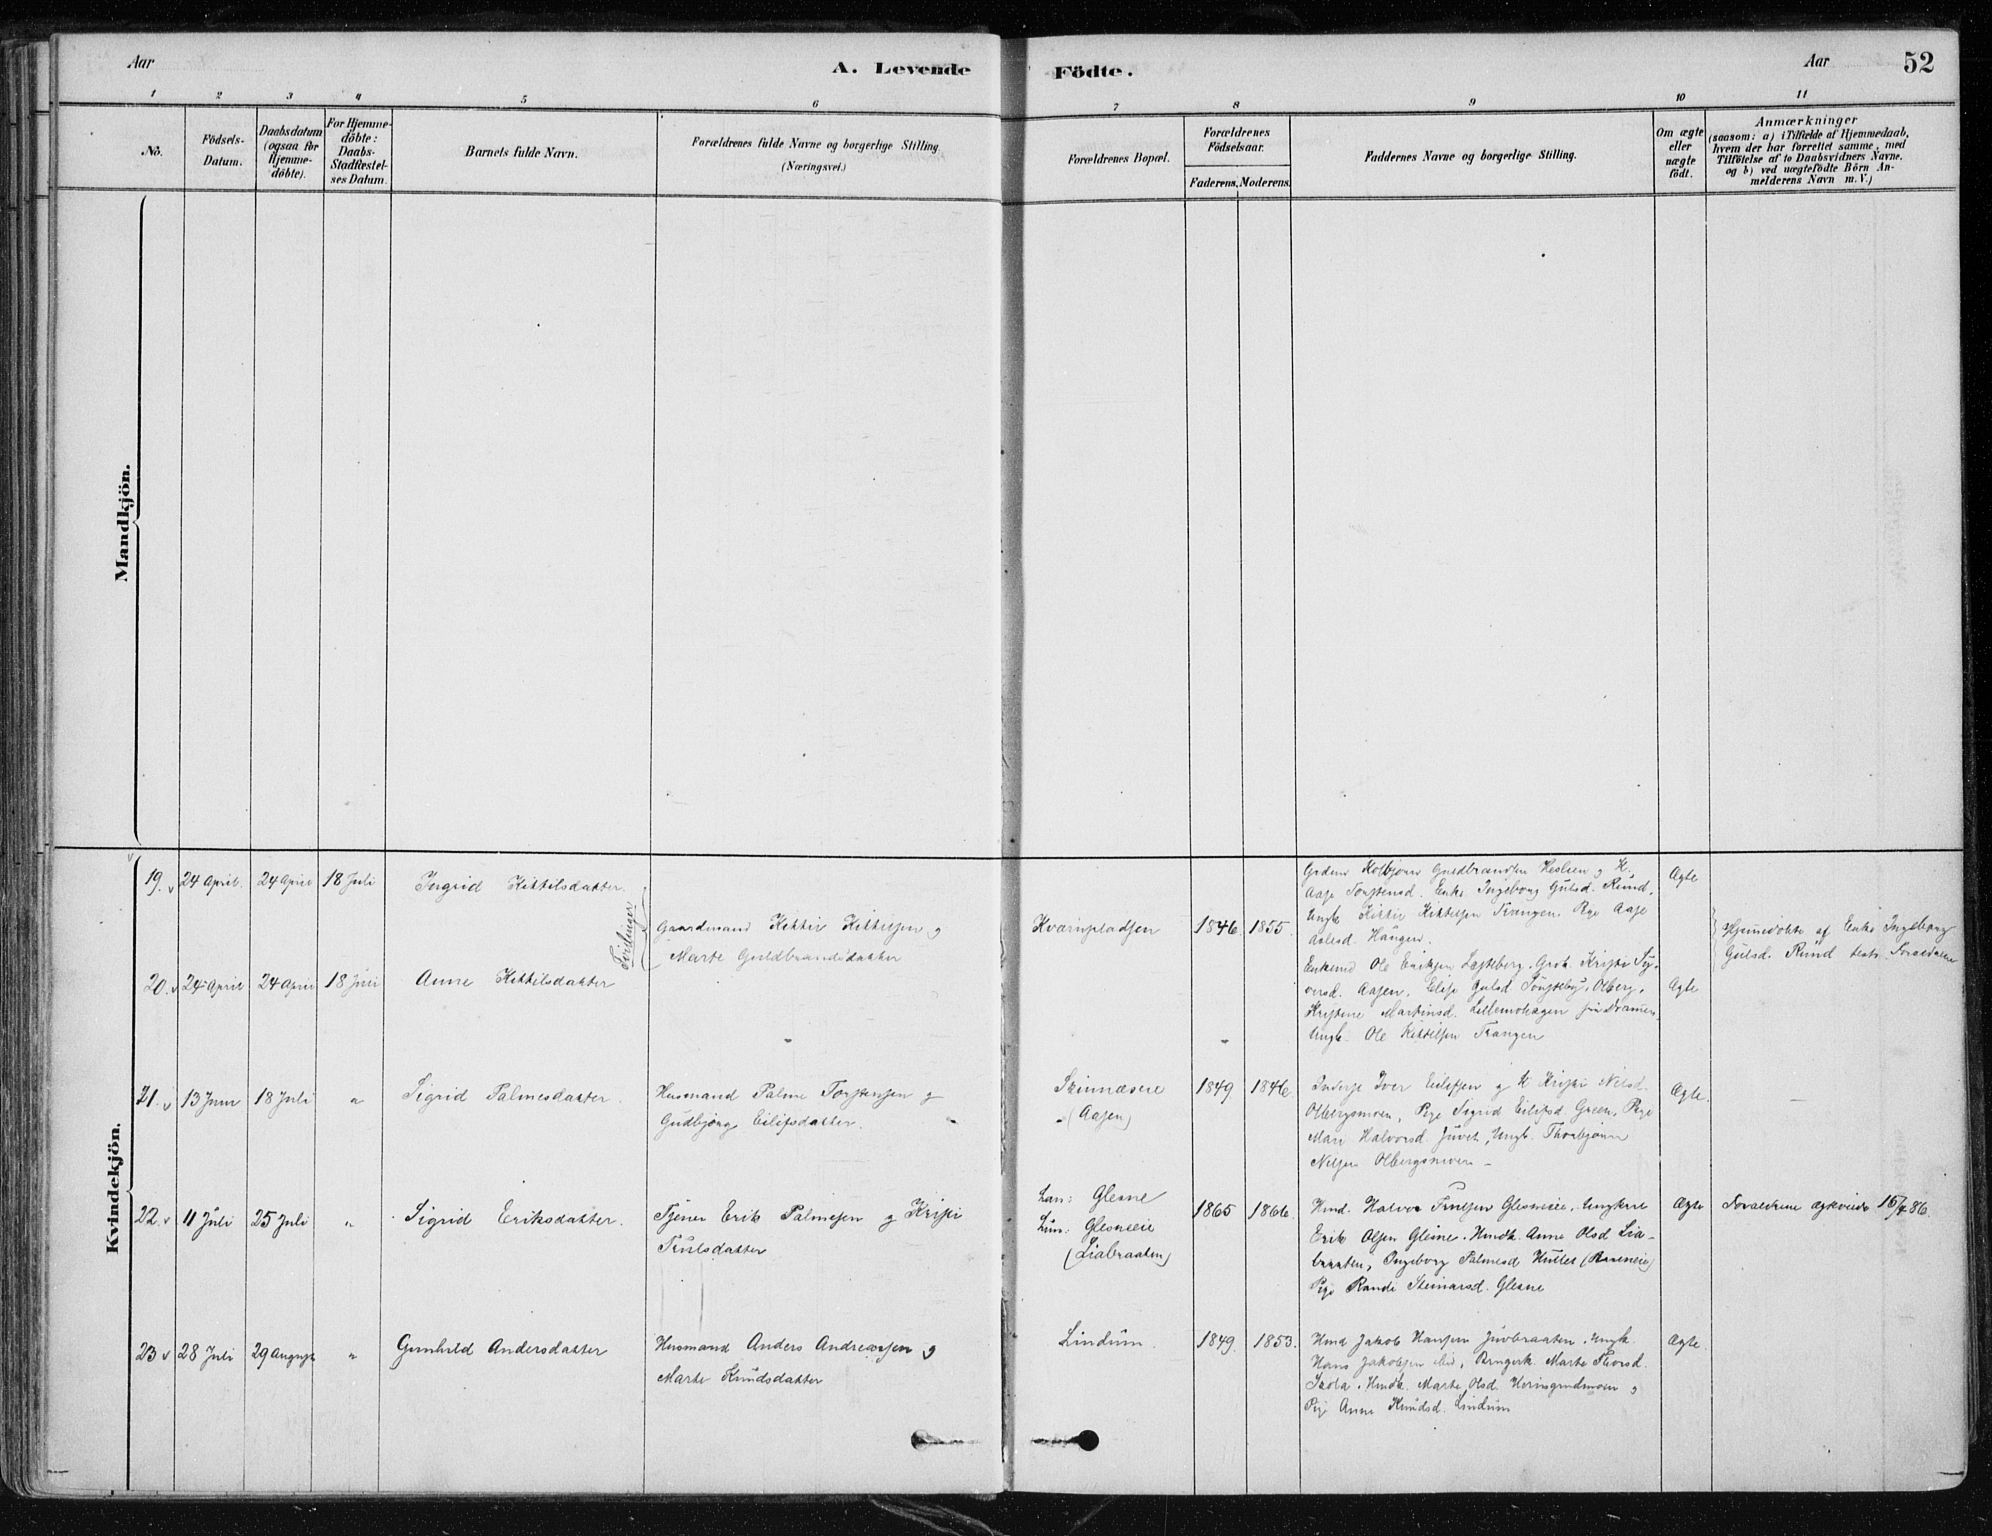 Aar
A. Levende
Födte.
Aar
52
1 2 3 4 5 6 7 8 9 10 11
No.
Födsels-
Datum.
Daabsdatum
(ogsaa for
Hjemme-
döbte).
For Hjemme-
döbte:
Daabs-
Stadfæstel-
ses Datum.
Barnets fulde Navn.
Forældrenes fulde Navne og borgerlige Stilling.
(Næringsvei.)
Forældrenes Bopæl.
Forældrenes
Födselsaar.
Faderens. Moderens.
Faddernes Navne og borgerlige Stilling.
Om ægte
eller
uægte
födt.
Anmærkninger
(saasom: a) i Tilfælde af Hjemmedaab,
hvem der har forrettet samme, med
Tilföielse af to Daabsvidners Navne.
og b) ved uægtefödte Börn An-
melderens Navn m.V.)
Mandkjön.
Kvindekjön.
19. 24 April. 24 April 18 Juli Ingrid Kittilsdatter.
Tvillinger
Gaardmand Kittil Kittilsen og
Marte Guldbrandsdatter
Kværnpladsen 1846 1855.
Aasje Torstensd. Enke Ingeborg Gulsd. Rund,
Ungk Kittil Kittilsen Trangen. Pige Aase
Ægte
Hjemmedöbte af Enke Ingeborg
Gulsd. Rund
20. 24 April 24 April 18 Juli Anne Kittilsdatter
Enkemd Ole Eriksen
Kristine Martinsd.
Ungk. Ole Kittilsen Trangen
Ægte
21. 13 Juni 18 Juli " Sigrid Palmesdatter.
Husmand Palme Torstensen og
Gudbjørg Eilifsdatter.
(Aasen)
1849 1846.
Inderst Iver Eilifsen og K Kristi Nilsd.
Olbergsmoen, Pige Sigrid Eilifsd. Green, Pige
Mari Halvorsd. Juvet, Ungk. Thorbjørn
Nilsen Olbergsmoen –
Ægte.
–
22. 11 Juli 25 Juli " Sigrid Eriksdatter.
Tjener Erik Palmesen og Kristi
Trulsdatter
Glesne
Glesneeie
(Liabraaten)
1865 1866.
Hmd. Halvor Trulsen Glesneeie, Ungkrle
Erik Olsen Glesne. Hmdk. Anne Olsd Lia-
braaten, Ingeborg Palmesd
Pige Randi Steinarsd. Glesne
Ægte
Forældrene ægteviede 15/7 86.
23 28 Juli 29 August " Gunhild Andersdatter
Husmand Anders Andreassen og
Marte Knudsdatter
Lindum.
1849. 1853.
Hmd Jakob Hansen Juvbraaten. Ungk.
Hans Jakobsen ibid, Brugerk. Marte Thorsd.
Skola. Hmdk. Marte Olsd.
Pige Anne Knudsd. Lindum
Ægte.